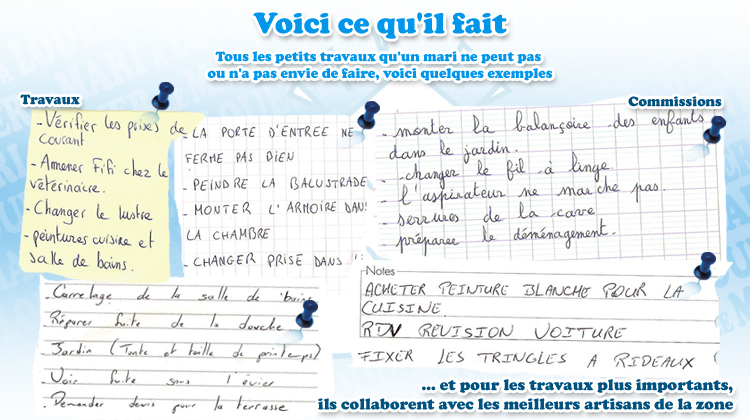 Voici ce qu'il fait
Tous les petits travaux qu'un mari ne peut pas
ou n'a pas envie de faire, voici quelques exemples
Travaux
- Vérifier les prises de
courant
- Amener Fifi chez le
vétérinaire.
- Changer le lustre
- peintures cuisine et
salle de bains.
- LA PORTE D'ENTREE NE
FERME PAS BIEN
- PEINDRE LA BALUSTRADE
- MONTER L'ARMOIRE DANS
LA CHAMBRE
- CHANGER PRISE DANS
Commissions
- monter la balançoire des enfants
dans le jardin.
- changer le fil à linge
- l'aspirateur ne marche pas.
- serrures de la cave
- préparer le déménagement.
- Carrelage de la salle de bains
- Réparer fuite de la douche
- Jardin (Tonte et taille de printemps)
- Voir fuite sous l'évier
- Demander devis pour la terrasse
Notes
ACHETER PEINTURE BLANCHE POUR LA
CUISINE.
RDV REVISION VOITURE
FIXER LES TRINGLES A RIDEAUX
... et pour les travaux plus importants,
ils collaborent avec les meilleurs artisans de la zone